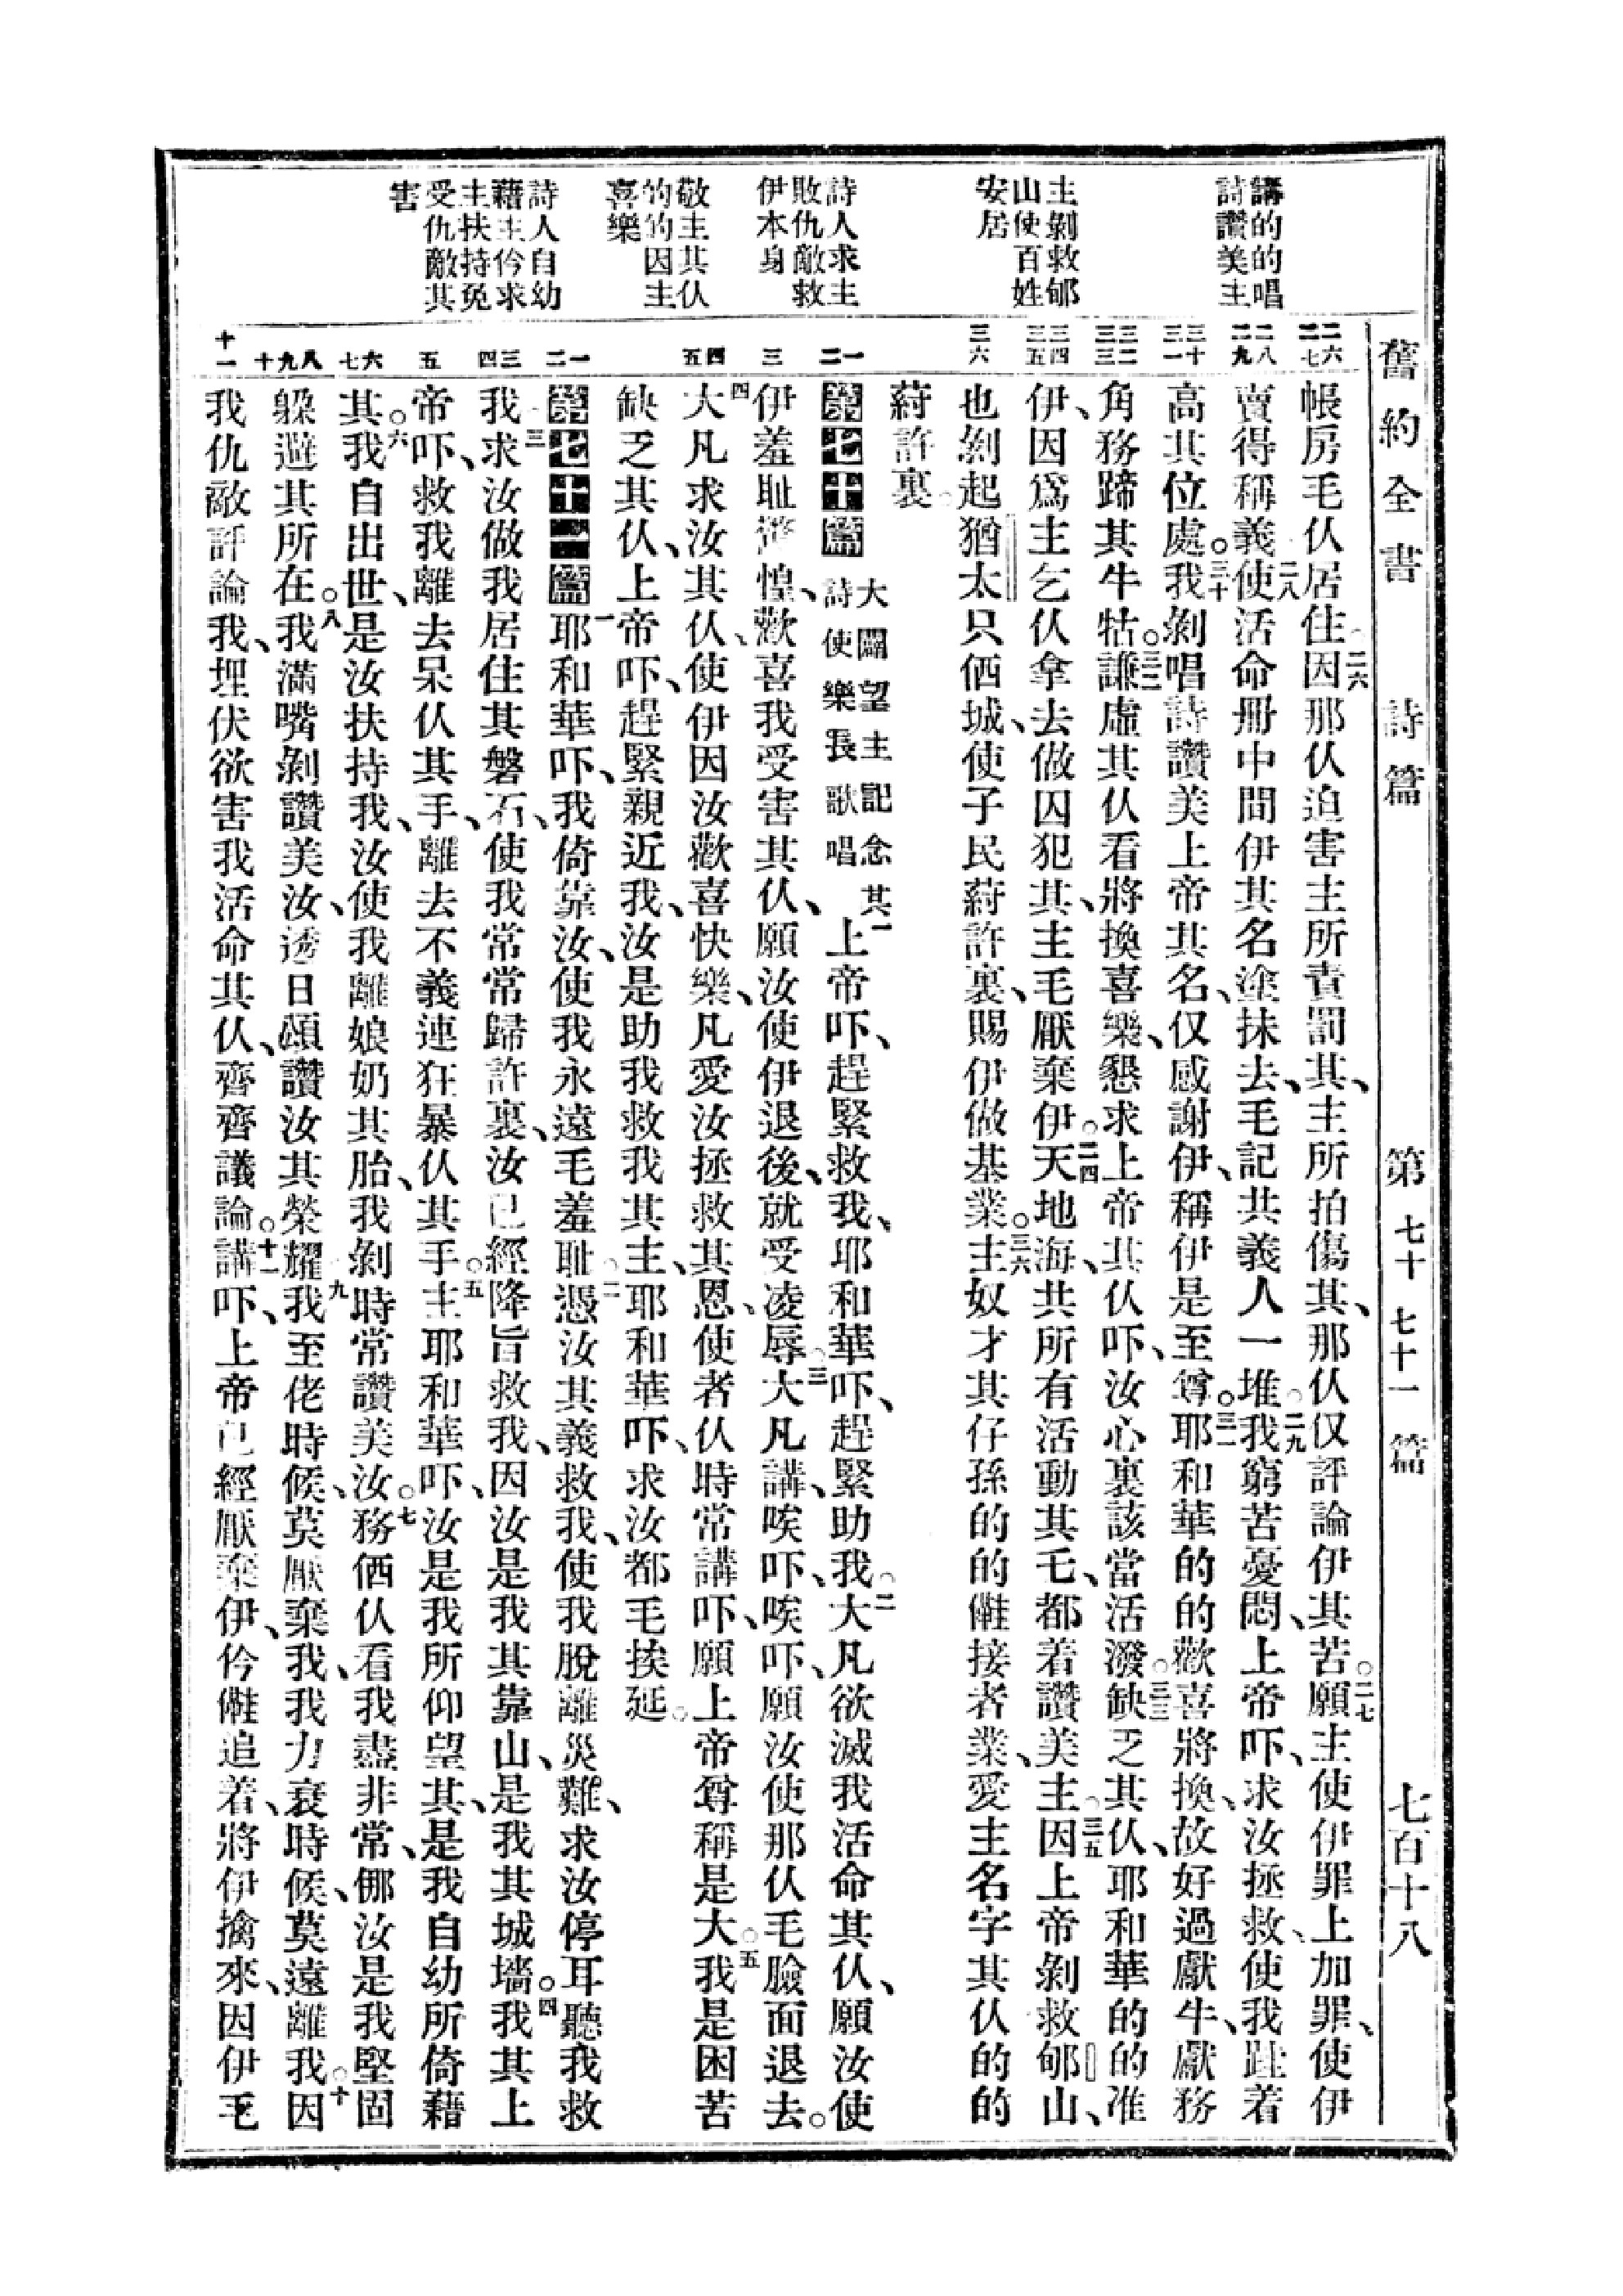 舊約全書 詩篇 第七十 七十一篇 七百十八
講的的唱
詩讚美主
主剝救郇
山使百姓
安居
詩人求主
敗仇敵救
伊本身
敬主其仈
的的因主
喜樂
詩人自幼
藉主仱求
主扶持免
受仇敵其
害
二六
二七
二八
二九
三十
三一
三二
三三
三四
三五
三六
一
二
三
四
五
一
二
三
四
五
六
七
八
九
十
十一
帳房毛仈居住。二六因那仈迫害主所責罰其、主所拍傷其、那仈仅評論伊其苦。二七願主使伊罪上加罪、使伊
賣得稱義。二八使活命冊中間伊其名塗抹去、毛記共義人一堆。二九我窮苦憂悶、上帝吓、求汝拯救、使我跬着
高其位處。三十我剝唱詩讚美上帝其名、仅感謝伊、稱伊是至尊。三一耶和華的的歡喜將換、故好過獻牛、獻務
角務蹄其牛牯。三二謙虛其仈看將換喜樂、懇求上帝其仈吓、汝心裏該當活潑。三三缺乏其仈、耶和華的的准
伊、因爲主乞仈拿去做囚犯其、主毛厭棄伊。三四天地海、共所有活動其乇、都着讚美主。三五因上帝剝救郇山、
也剝起猶太只伵城、使子民葑許裏、賜伊做基業。三六主奴才其仔孫的的㒕接者業、愛主名字其仈的的
葑許裏。
第七十篇 大闢望主記念其詩使樂長歌唱 一上帝吓、趕緊救我、耶和華吓、趕緊助我。二大凡欲滅我活命其仈、願汝使
伊羞耻驚惶、歡喜我受害其仈、願汝使伊退後、就受凌辱。三大凡講、唉吓、唉吓、願汝使那仈毛臉面退去。
四大凡求汝其仈、使伊因汝歡喜快樂、凡愛汝拯救其恩、使者仈時常講吓、願上帝尊稱是大。五我是困苦
缺乏其仈、上帝吓、趕緊親近我、汝是助我救我其主、耶和華吓、求汝都毛挨延。
第七十一篇 一耶和華吓、我倚靠汝、使我永遠毛羞耻。二憑汝其義救我、使我脫離災難、求汝停耳聽我救
我。三求汝做我居住其磐石、使我常常歸許裏、汝已經降旨救我、因汝是我其靠山、是我其城墻。四我其上
帝吓、救我離去呆仈其手、離去不義連狂暴仈其手。五主耶和華吓、汝是我所仰望其、是我自幼所倚藉
其。六我自出世、是汝扶持我、汝使我離娘奶其胎、我剝時常讚美汝。七務伵仈看我盡非常、㑚汝是我堅固
躲避其所在。八我滿嘴剝讚美汝、透日頌讚汝其榮耀。九我至佬時候、莫厭棄我、我力衰時候、莫遠離我。十因
我仇敵評論我、埋伏欲害我活命其仈、齊齊議論。十一講吓、上帝已經厭棄伊、仱㒕追着、將伊擒來、因伊毛